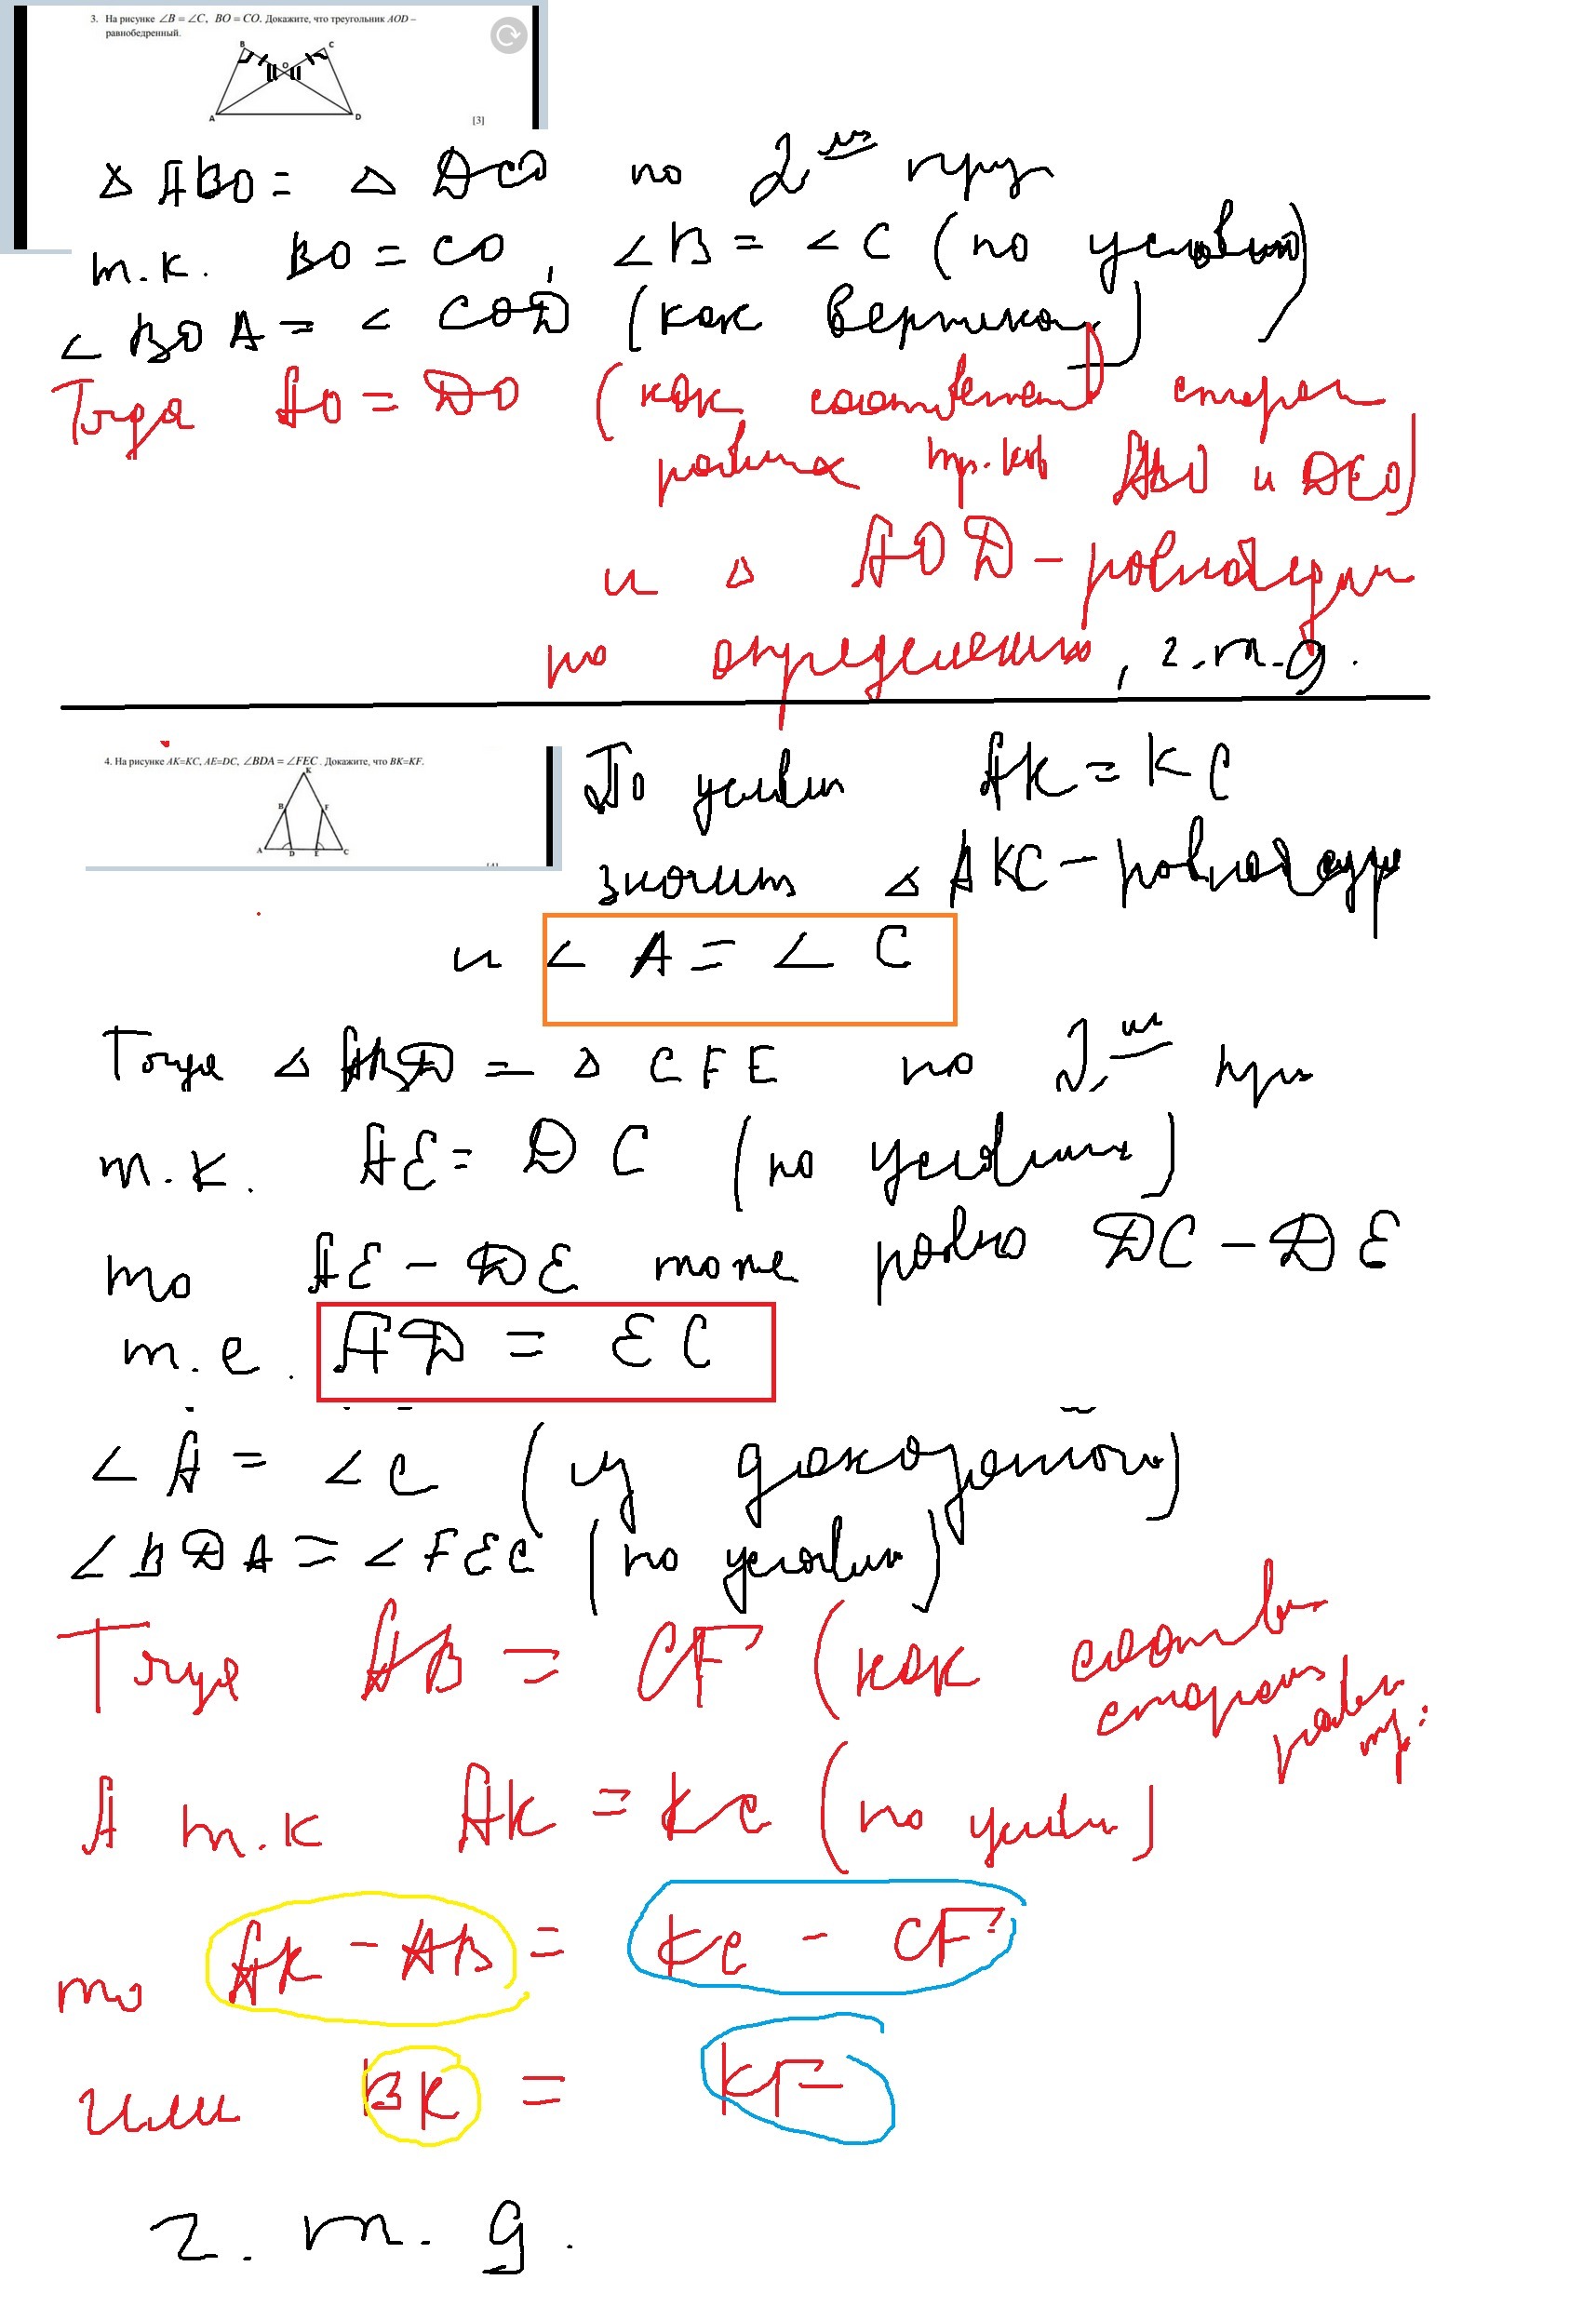 3. На рисунке ∠B = ∠C, BO = CO. Докажите, что треугольник AOD –
равнобедренный.
B C
O
A D
[3]
△ ABO = △ DCO по 2му приз
т.к. BO = CO, ∠B = ∠C (по условию)
∠ BOA = ∠ COD (как вертикал)
Тогда AO = DO (как соответствен сторон
равных тр.ков ABO и DCO)
и △ AOD – равнобедрен
по определению, ч.т.д.
4. На рисунке AK=KC, AE=DC, ∠BDA = ∠FEC. Докажите, что BK=KF.
K
B F
A D E C
По услови AK = KC
значит △ AKC – равнобедр
и ∠ A = ∠ C
Тогда △ ABD = △ CFE по 2му при
т.к. AE = DC (по условию)
то AE – DE тоже равно DC – DE
т.е. AD = EC
∠ A = ∠ C (из доказанного)
∠ BDA = ∠ FEC (по услови)
Тогда AB = CF (как соотв
сторон
равн
тр.
А т.к AK = KC (по услови)
то AK – AB = KC – CF
или BK = KF
ч. т. д.